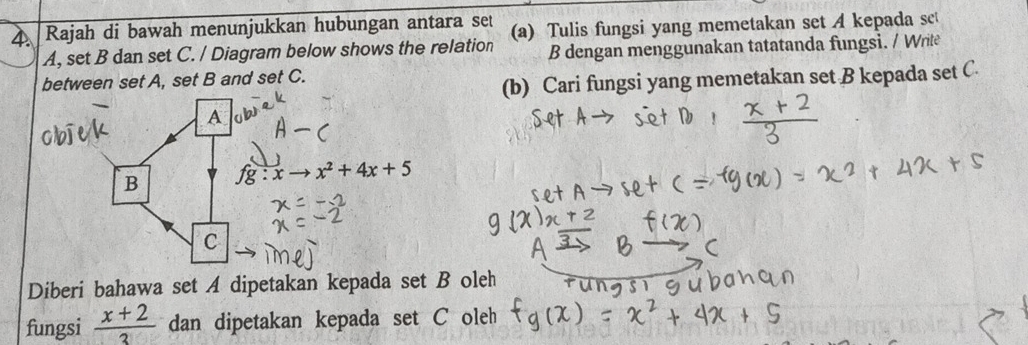 4. Rajah di bawah menunjukkan hubungan antara set
A, set B dan set C. / Diagram below shows the relation
between set A, set B and set C.
objek
A
objek
A - C
B
fg : x → x² + 4x + 5
x = -2
x = -2
C
→ imej
Diberi bahawa set A dipetakan kepada set B oleh
fungsi x + 2 / 3 dan dipetakan kepada set C oleh fg(x) = x² + 4x + 5
(a) Tulis fungsi yang memetakan set A kepada set
B dengan menggunakan tatatanda fungsi. / Write
(b) Cari fungsi yang memetakan set B kepada set C.
Set A → set B , x + 2 / 3
set A → set C = fg(x) = x² + 4x + 5
g(x) x + 2 / 3 f(x)
A → B → C
fungsi gubahan